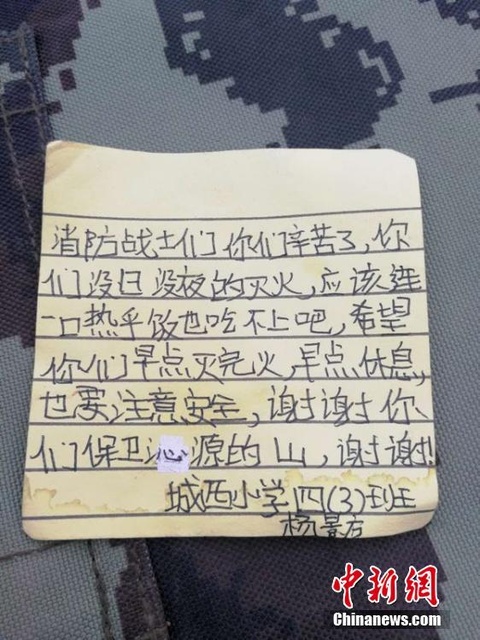 消防战士们你们辛苦了,你
们没日没夜的灭火,应该连
一口热乎饭也吃不上吧,希望
你们早点灭完火,早点休息,
也要注意安全,谢谢你
们保卫沁源的山,谢谢!
城西小学四(3)班
杨景方
中新网
Chinanews.com